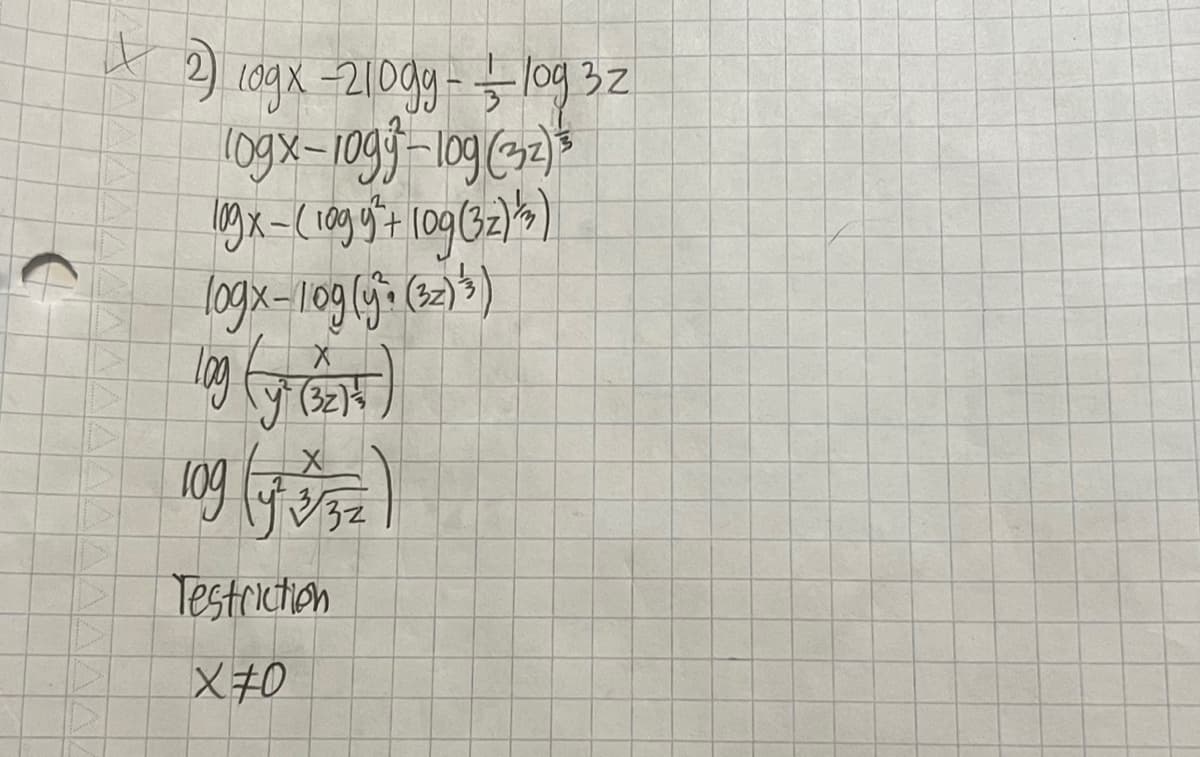 2) log x - 2 log y - 1/3 log 3z
log x - log y² - log (3z)^(1/3)
log x - ( log y² + log (3z)^(1/3) )
log x - log (y² · (3z)^(1/3))
log ( x / (y² (3z)^(1/3)) )
log ( x / (y² ∛(3z)) )
restriction
x ≠ 0